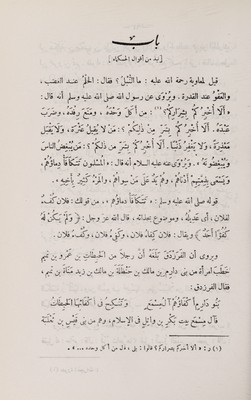 باب
[ نبذ من أقوال الحكماء ]
قيل لمعاوية رحمة الله عليه : ما النُّبْلُ ؟ فقال : الحِلْمُ عند الغضب ،
والعفوُ عند القدرة . ويُرْوَى عن رسول الله صلى الله عليه وسلم أنه قال :
« أَلَا أُخْبِرُكُمْ بِشِرَارِكُمْ ؟ (١) : من أَكَلَ وَحْدَهُ ، ومَنَعَ رِفْدَهُ ، وضَرَبَ
عَبْدَهُ . أَلَا أُخْبِرُكُمْ بِشَرٍّ مِنْ ذلِكُمْ ؟ : مَنْ لَا يُقِيلُ عَثْرَةً ، ولَا يَقْبَلُ
مَعْذِرَةً ، ولَا يَغْفِرُ ذَنْبًا . أَلَا أُخْبِرُكُمْ بِشَرٍّ مِنْ ذلِكُمْ ؟ : مَنْ يُبْغِضُ النَّاسَ
ويُبْغِضُونَهُ » . ويُرْوَى عنه عليه السلام أنه قال : « المسلمون تَتَكَافَأُ دِمَاؤُهُمْ ،
ويَسْعَى بِذِمَّتِهِمْ أَدْنَاهُمْ ، وهُمْ يَدٌ على مَنْ سِوَاهُمْ ، والمَرْءُ كَثِيرٌ بِأَخِيهِ » .
قوله صلى الله عليه وسلم : « تَتَكَافَأُ دِمَاؤُهُمْ » ، من قولك : فلان كُفْءٌ
لفلان ، أى عَدِيلُهُ ، وموضوع بحذائه ، قال الله عز وجل : ﴿ وَلَمْ يَكُنْ لَهُ
كُفُوًا أَحَدٌ ﴾ ويقال : فلان كِفَاءُ فلان ، وكَفِىءُ فلان ، وكُفْءُ فلان .
ويروى أن الفرزدق بَلَغَهُ أنَّ رجلاً من الحَبِطَاتِ بن عمرو بن تميم
خَطَبَ امرأةً من بنى دارِم بن مالك بن حنظلة بن مالك بن زيد مناة بن تميم ،
فقال الفرزدق :
بَنُو دَارِمٍ أَكْفَاؤُهُمْ آلُ مِسْمَعٍ وتَنْكِحُ فى أَكْفَائِهَا الحَبِطَاتُ
آل مِسْمَع بيت بكر بن وائل فى الإسلام ، وهم من بنى قيس بن ثعلبة
(١) ر : « ألا أخبركم بشراركم ؟ قالوا : بلى ، قال من أكل وحده ... » .